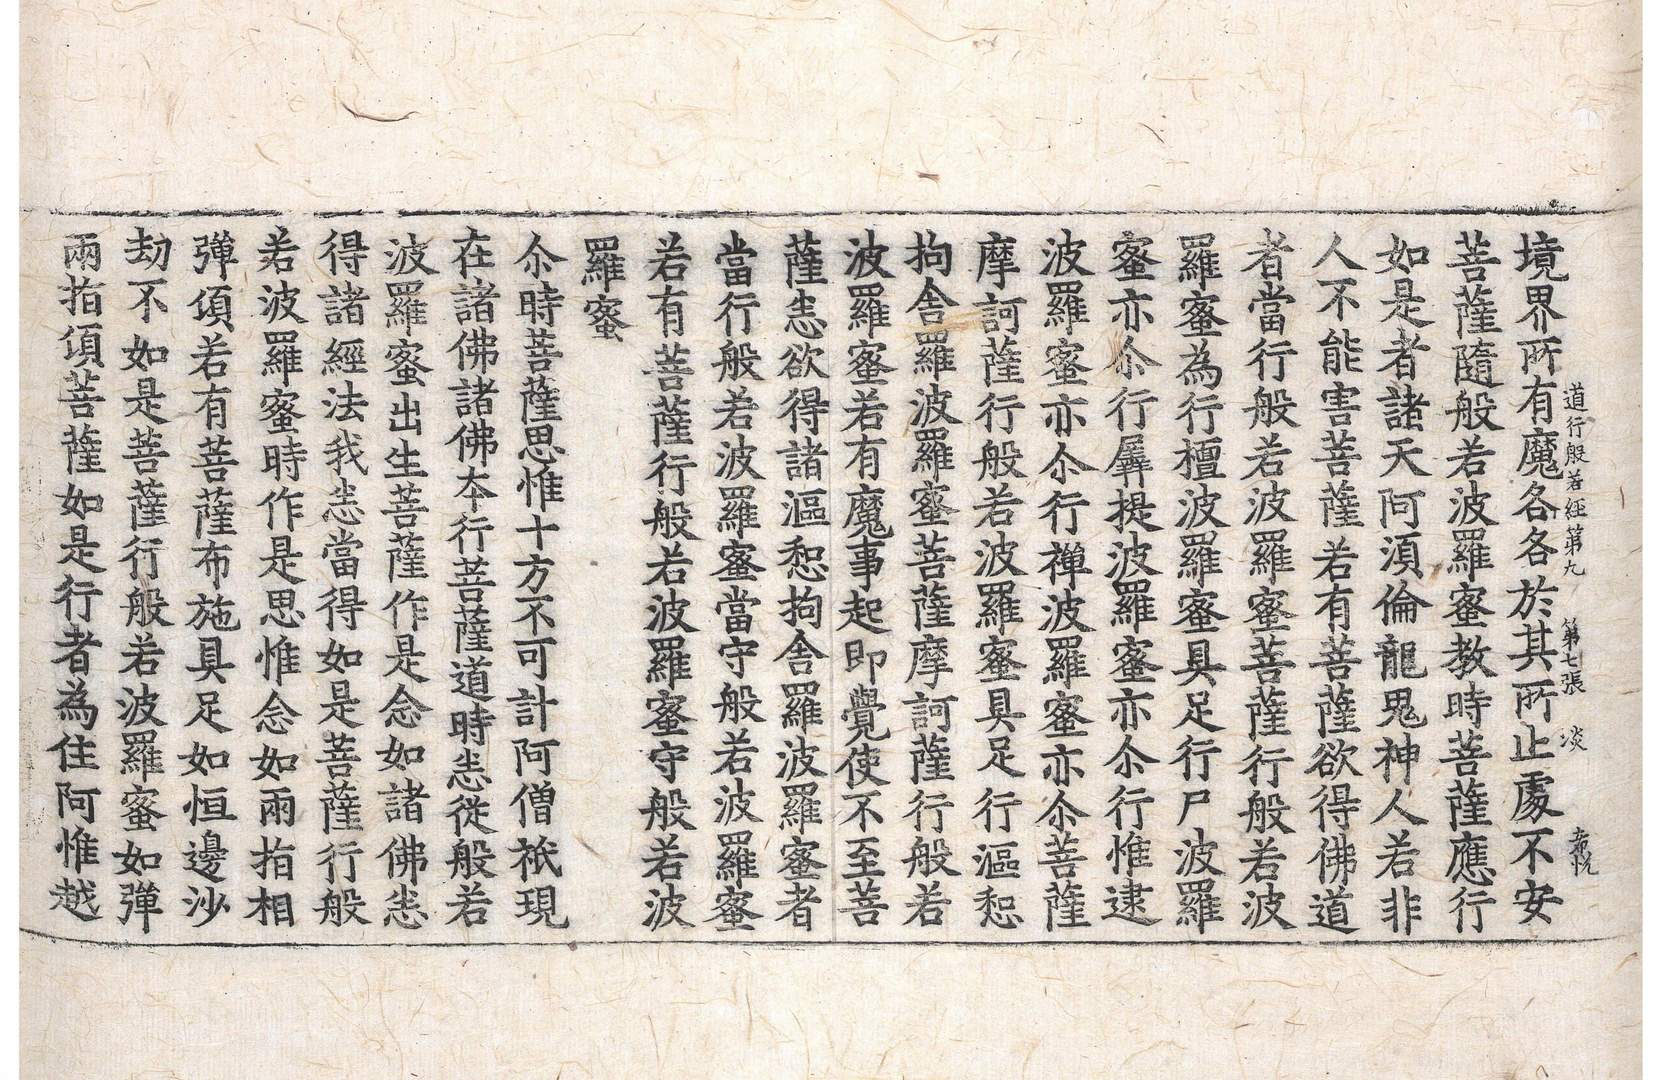 道行般若經第九 第七張 淡
境界所有魔各各於其所止處不安
菩薩隨般若波羅蜜教時菩薩應行
如是者諸天阿須倫龍鬼神人若非
人不能害菩薩若有菩薩欲得佛道
者當行般若波羅蜜菩薩行般若波
羅蜜為行檀波羅蜜具足行尸波羅
蜜亦尒行羼提波羅蜜亦尒行惟逮
波羅蜜亦尒行禪波羅蜜亦尒菩薩
摩訶薩行般若波羅蜜具足行漚惒
拘舍羅波羅蜜菩薩摩訶薩行般若
波羅蜜若有魔事起即覺使不至菩
薩悉欲得諸漚惒拘舍羅波羅蜜者
當行般若波羅蜜當守般若波羅蜜
若有菩薩行般若波羅蜜守般若波
羅蜜
尒時菩薩思惟十方不可計阿僧祇現
在諸佛諸佛本行菩薩道時悉從般若
波羅蜜出生菩薩作是念如諸佛悉
得諸經法我悉當得如是菩薩行般
若波羅蜜時作是思惟念如兩指相
彈頃若有菩薩布施具足如恒邊沙
劫不如是菩薩行般若波羅蜜如彈
兩指頃菩薩如是行者為住阿惟越